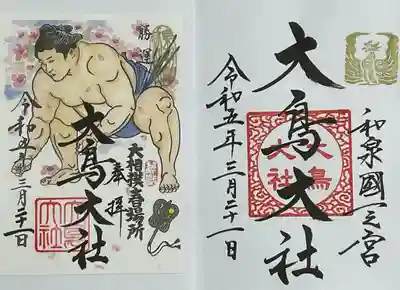 勝運
奉拝
大相撲春場所
大鳥大社
令和五年三月二十一日
和泉國一之宮
大鳥大社
大鳥大社
令和五年三月二十一日